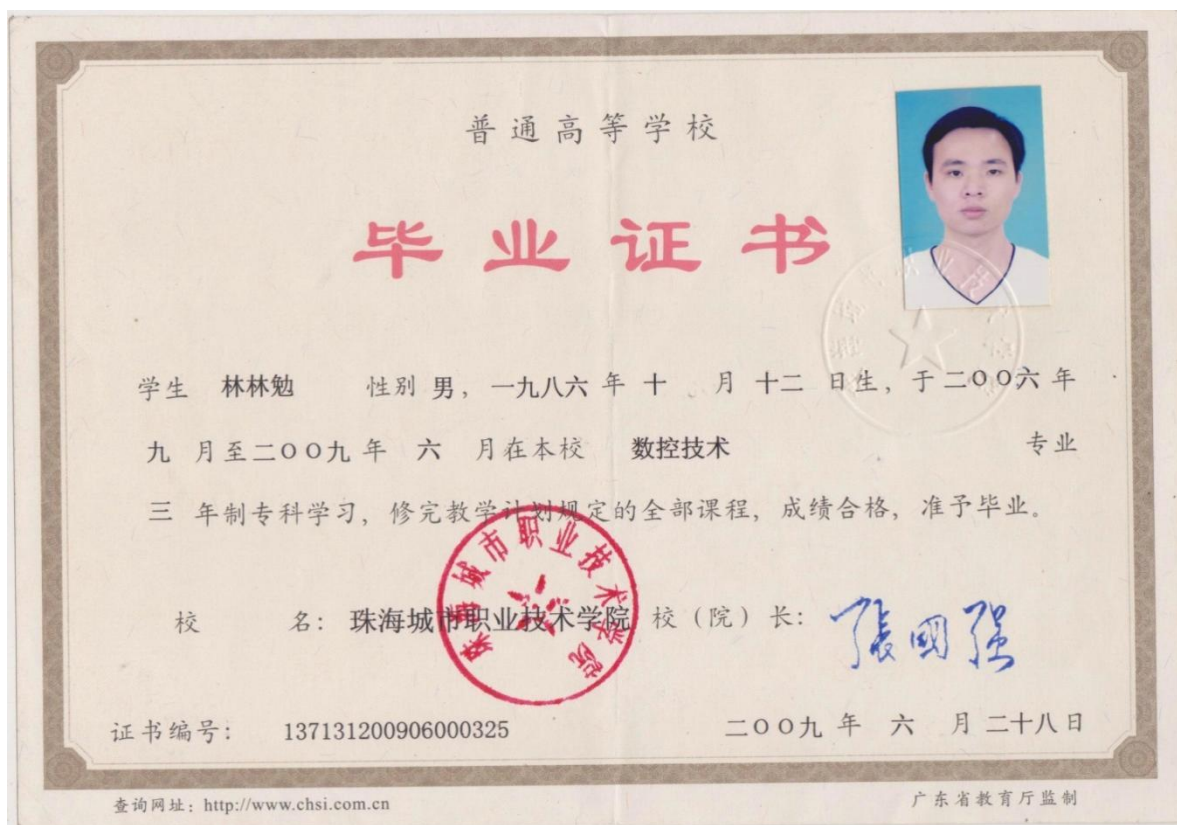 普通高等学校
毕业证书
学生 林林勉 性别 男，一九八六 年 十 月 十二 日生，于二〇〇六 年
九 月至二〇〇九 年 六 月在本校 数控技术 专业
三 年制专科学习，修完教学计划规定的全部课程，成绩合格，准予毕业。
珠海城市职业技术学院
校 名：珠海城市职业技术学院 校（院）长：張國强
证书编号： 137131200906000325 二〇〇九 年 六 月 二十八日
查询网址：http://www.chsi.com.cn 广东省教育厅监制